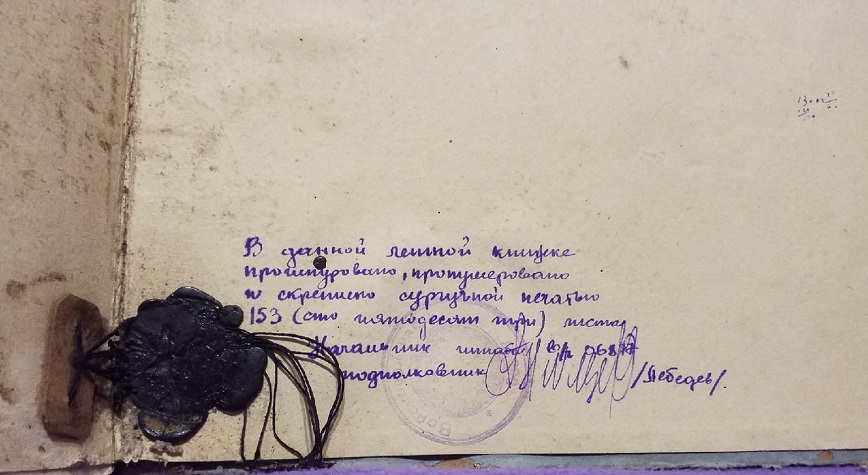 В данной летной книжке
прошнуровано, пронумеровано
и скреплено сургучной печатью
153 (сто пятьдесят три) листа
Начальник штаба в/ч
подполковник /Лебедев/.